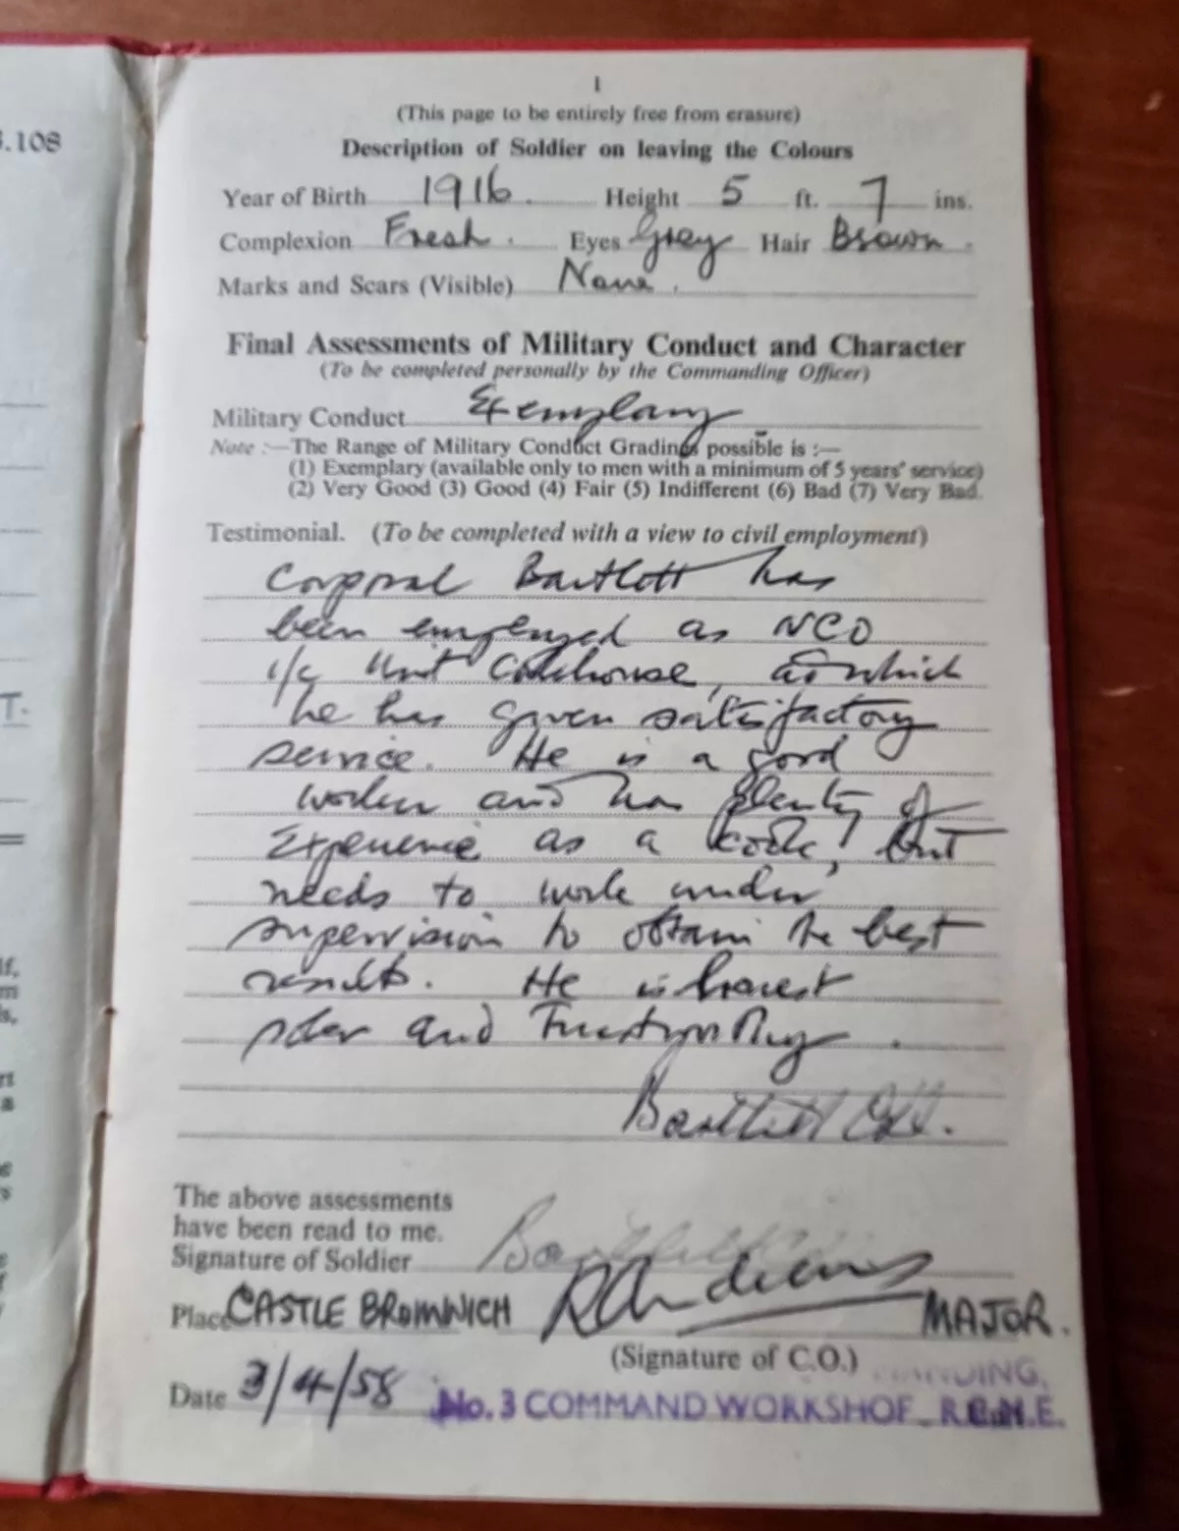 .108
1
(This page to be entirely free from erasure)
Description of Soldier on leaving the Colours
Year of Birth 1916. Height 5 ft. 7 ins.
Complexion Fresh. Eyes Grey Hair Brown.
Marks and Scars (Visible) None.
Final Assessments of Military Conduct and Character
(To be completed personally by the Commanding Officer)
Military Conduct Exemplary
Note :—The Range of Military Conduct Gradings possible is :—
(1) Exemplary (available only to men with a minimum of 5 years' service)
(2) Very Good (3) Good (4) Fair (5) Indifferent (6) Bad (7) Very Bad.
Testimonial. (To be completed with a view to civil employment)
Corporal Bartlett has
been employed as NCO
i/c Unit Cookhouse, at which
he has given satisfactory
service. He is a good
worker and has plenty of
experience as a cook, but
needs to work under
supervision to obtain the best
results. He is honest
sober and trustworthy.
Bartlett Cpl.
The above assessments
have been read to me.
Signature of Soldier Bartlett
Place CASTLE BROMWICH R Andrews MAJOR.
(Signature of C.O.)
Date 3/4/58 No. 3 COMMAND WORKSHOP R.E.M.E.
T.